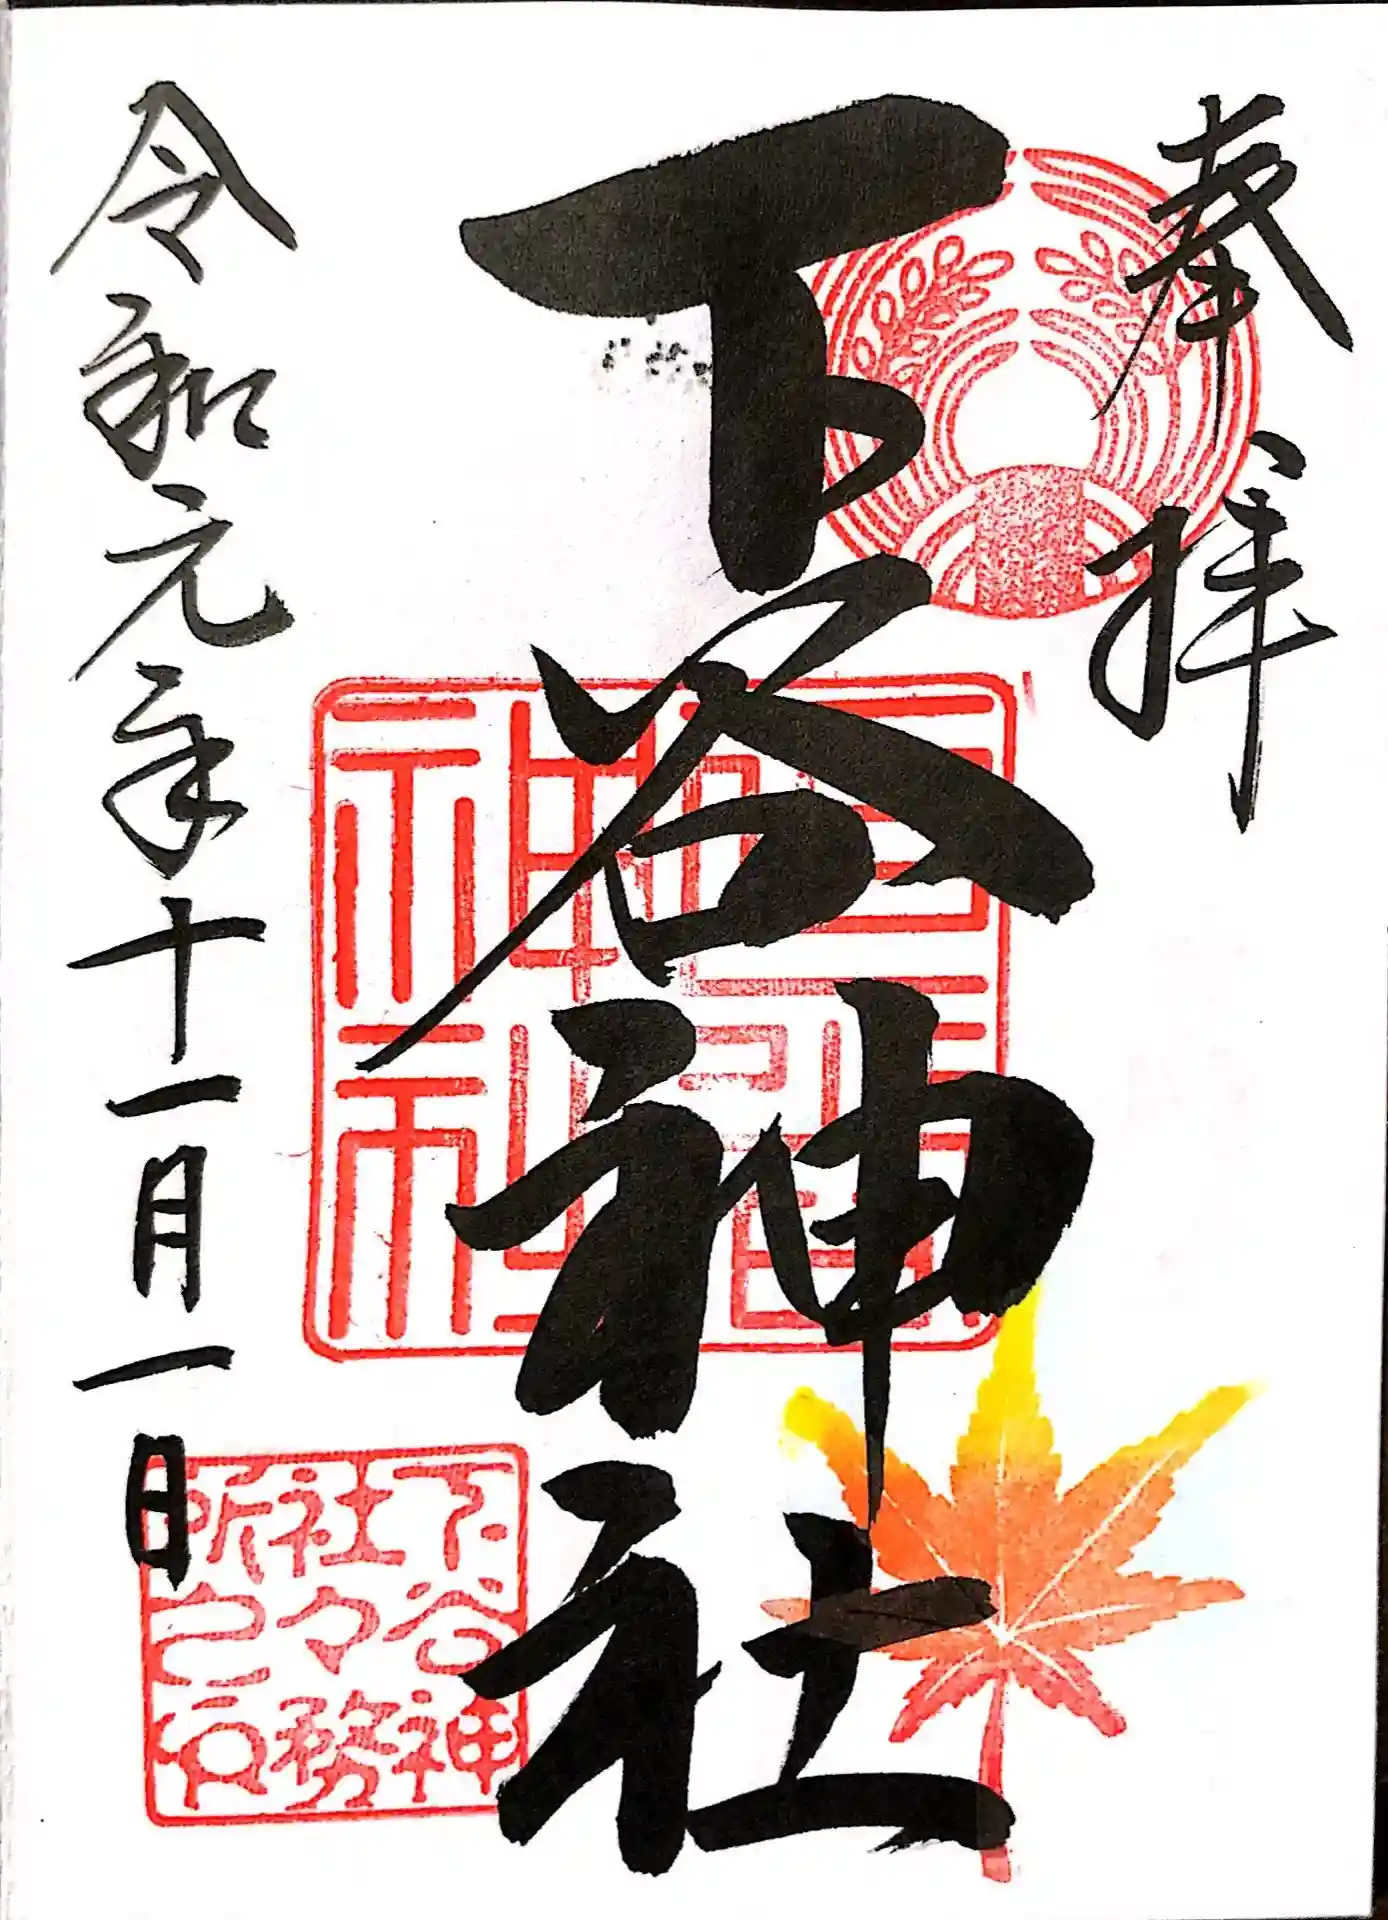 奉拝
下谷神社
下谷神社
下谷神
社々務
所之印
令和元年十一月一日